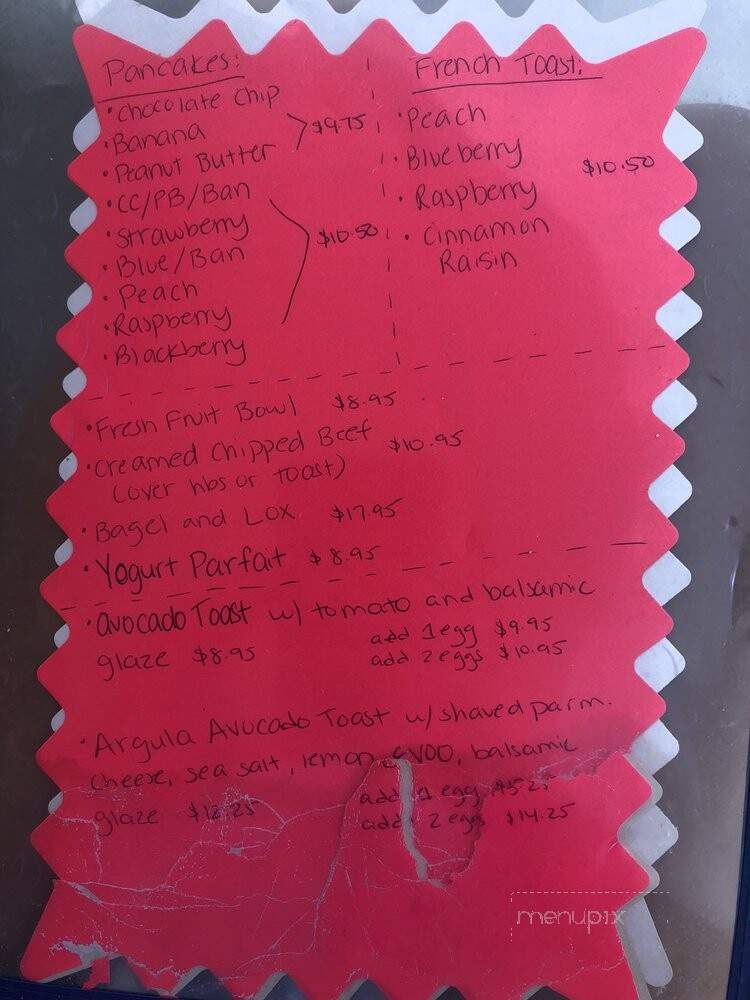 Pancakes:
• Chocolate Chip
• Banana
• Peanut Butter
$9.75
• CC/PB/Ban
• Strawberry
• Blue/Ban
• Peach
• Raspberry
• Blackberry
$10.50
French Toast:
• Peach
• Blueberry
• Raspberry
• Cinnamon
Raisin
$10.50
• Fresh Fruit Bowl $8.95
• Creamed Chipped Beef $10.95
(over hbs or toast)
• Bagel and Lox $17.95
• Yogurt Parfait $8.95
• Avocado Toast w/ tomato and balsamic
glaze $8.95
add 1 egg $9.95
add 2 eggs $10.95
• Argula Avocado Toast w/ shaved parm.
cheese, sea salt, lemon EVOO, balsamic
glaze $12.25
add 1 egg
add 2 eggs $14.25
menupix